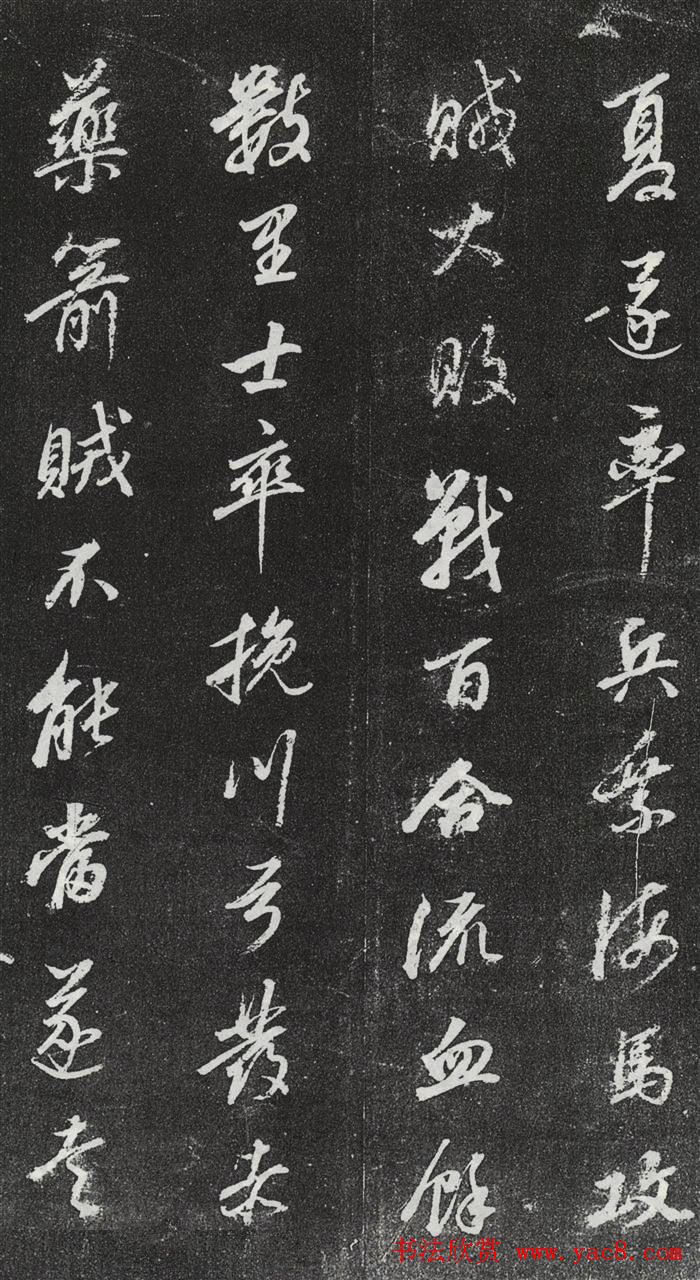 夏率兵乘海馬攻
賊大敗戰百合流血餘
數里士卒挽川弓發赤
藥箭賊不能當遂走
书法欣赏 www.yac8.com